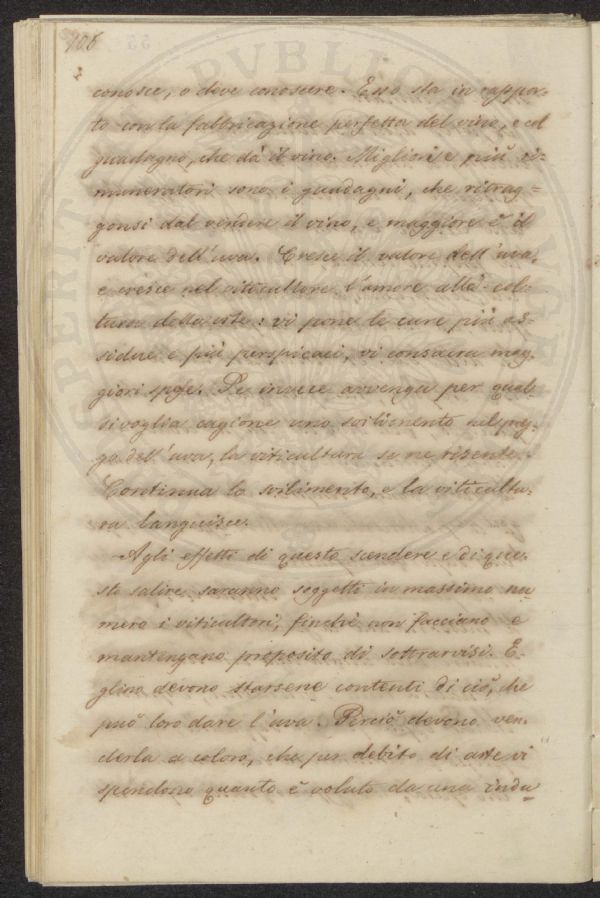 106
conosce, o deve conoscere. Esso sta in rappor-
to con la fabbricazione perfetta del vino, e col
guadagno, che dà il vino. Migliori e più ri-
muneratori sono i guadagni, che ritrag-
gonsi dal vendere il vino, e maggiore è il
valore dell'uva. Cresce il valore dell'uva,
e cresce nel viticultore l'amore alla col-
tura della vite: vi pone le cure più as-
sidue e più perspicaci, vi consacra mag-
giori spese. Se invece avvenga per qual-
sivoglia cagione uno svilimento nel prez-
zo dell'uva, la viticultura se ne risente.
Continua lo svilimento, e la viticultu-
ra languisce.
Agli effetti di questo scendere e di que-
sto salire saranno soggetti in massimo nu
mero i viticultori, finchè non facciano e
mantengano proposito di sottrarvisi. E-
glino devono starsene contenti di ciò, che
può loro dare l'uva. Perciò devono ven-
derla a coloro, che per debito di arte vi
spendono quanto è voluto da una indu